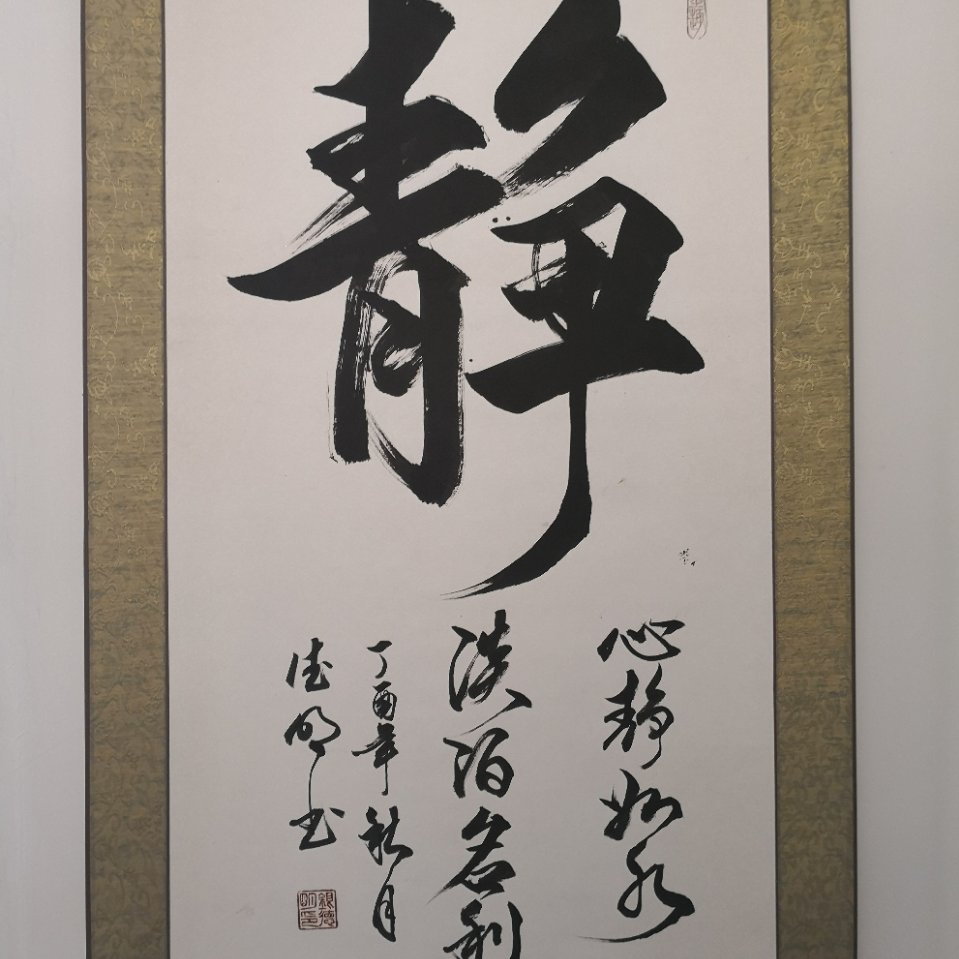 静
心静如水
淡泊名利
丁酉年秋月
德明书